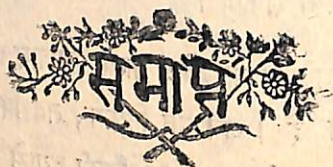 समाप्त